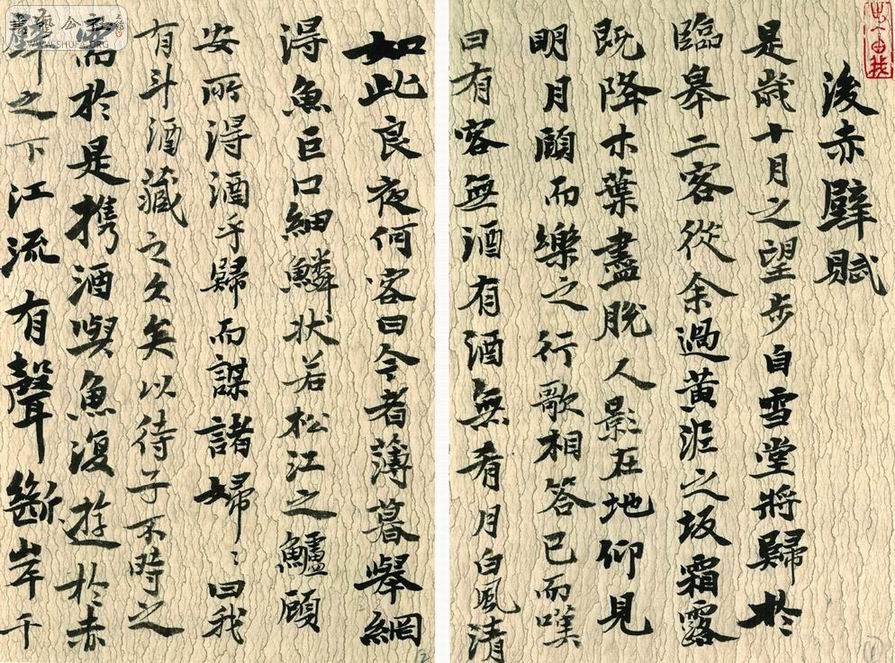 後赤壁賦
是歲十月之望步自雪堂將歸於
臨皋二客從余過黃泥之坂霜露
既降木葉盡脫人影在地仰見
明月顧而樂之行歌相答已而嘆
曰有客無酒有酒無肴月白風清
如此良夜何客曰今者薄暮舉網
得魚巨口細鱗狀若松江之鱸顧
安所得酒乎歸而謀諸婦〻曰我
有斗酒藏之久矣以待子不時之
需於是携酒與魚復遊於赤
壁之下江流有聲斷岸千
書藝公社
WWW.SHUFA.ORG
1
2